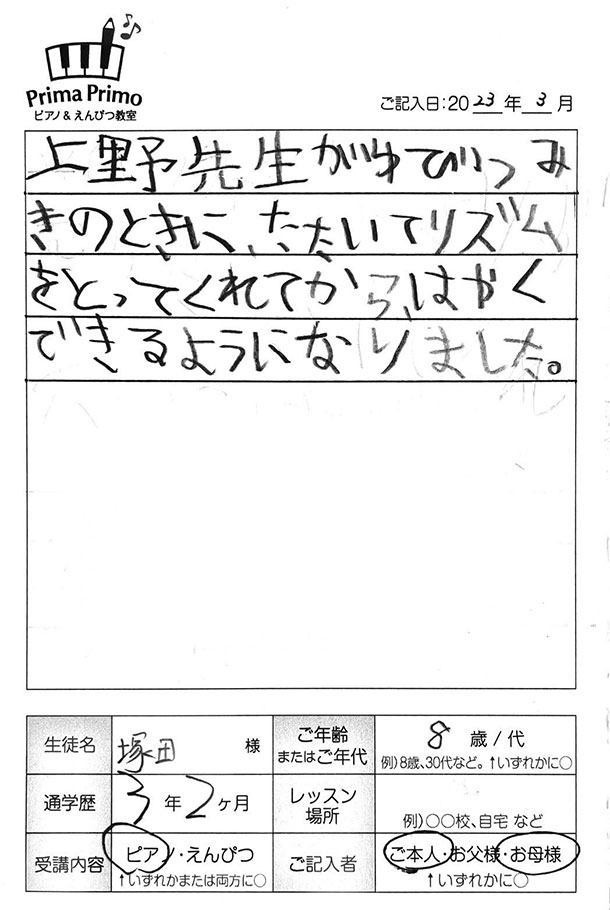 Prima Primo
ピアノ＆えんぴつ教室
ご記入日:2023年3月
上野先生がゆびつみ
きのときに、たたいてリズム
をとってくれてから、はやく
できるようになりました。
生徒名 塚田 様
ご年齢
またはご年代
8 歳/代
例)8歳、30代など。↑いずれかに○
通学歴 3年2ヶ月
レッスン
場所
例)○○校、自宅 など
受講内容 ピアノ・えんぴつ
↑いずれかまたは両方に○
ご記入者 ご本人・お父様・お母様
↑いずれかに○